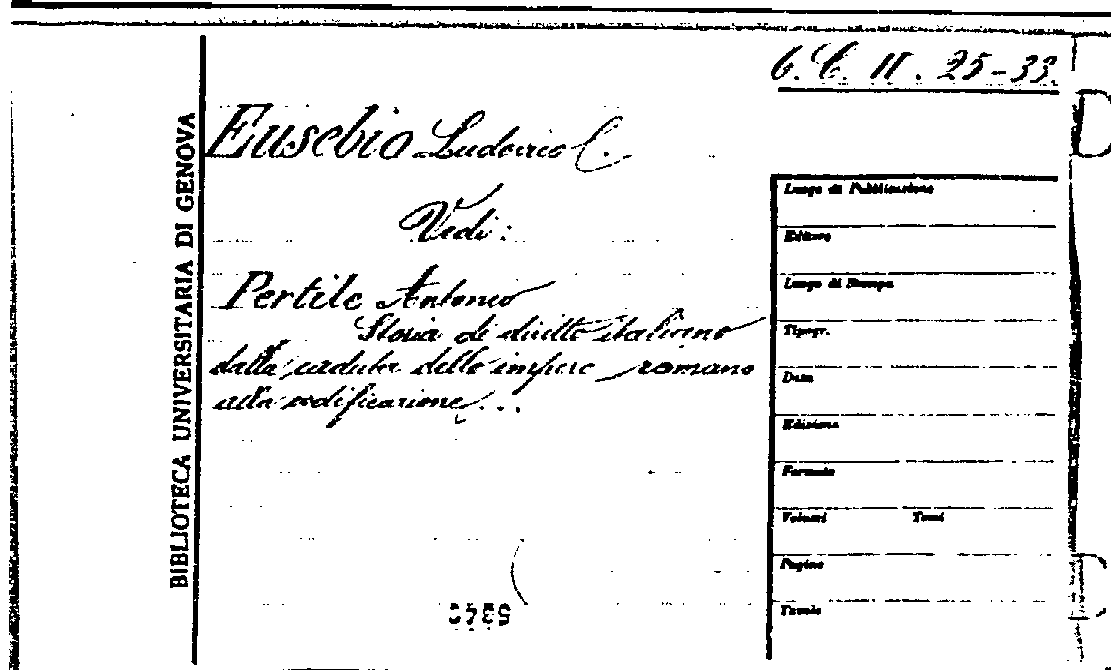 6. C. II. 25-33.
Eusebio Ludovico C.
Vedi:
Pertile Antonio
Storia di diritto italiano
dalla caduta dello impero romano
alla codificazione...
BIBLIOTECA UNIVERSITARIA DI GENOVA
Luogo di Pubblicazione
Editore
Luogo di Stampa
Tipogr.
Data
Edizione
Formato
Volumi Tomi
Pagine
Tavole